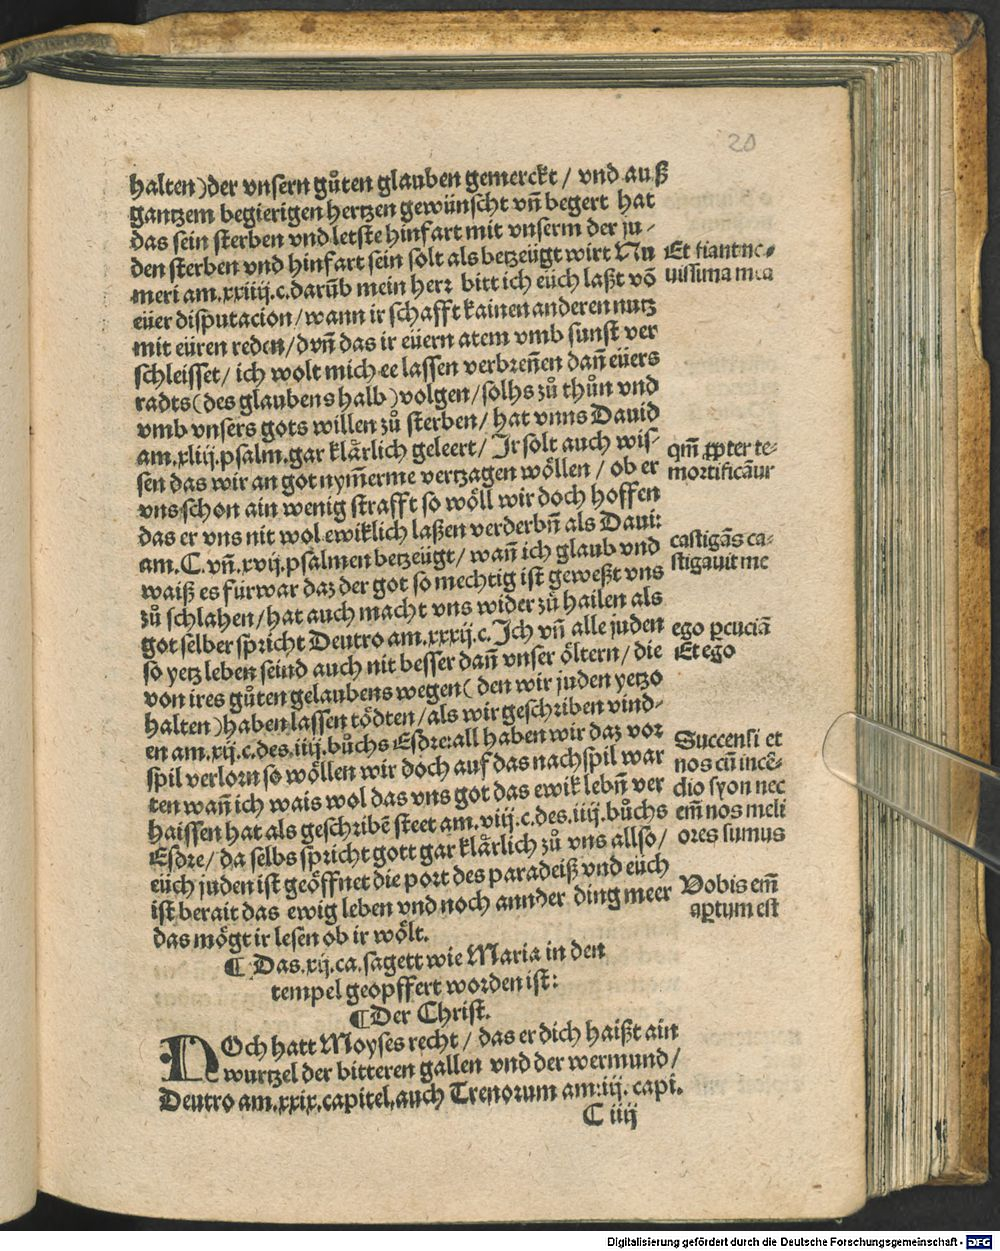 20
halten) der vnsern gůten glauben gemerckt / vnd auß
gantzem begierigen hertzen gewünscht vñ begert hat
das sein sterben vnd letste hinfart mit vnserm der ju⸗
den sterben vnd hinfart sein solt als betzeügt wirt Nu
Et fiant no⸗
meri am.xxiiij.c.darůb mein herr bitt ich eüch laßt vō
uissima mea
eüer disputacion / wann ir schafft kainen anderen nutz
mit eüren reden / dvñ das ir eüern atem vmb sunst ver
schleisset / ich wolt mich ee lassen verbreñen dañ eüers
radts (des glaubens halb) volgen / solhs zů thůn vnd
vmb vnsers gots willen zů sterben / hat vnns Dauid
am.xliij.psalm.gar klårlich geleert / Jr solt auch wis⸗
qm̃ ꝓpter te⸗
sen das wir an got nym̃erme vertzagen wöllen / ob er
mortificãur
vns schon ain wenig strafft so wöll wir doch hoffen
das er vns nit wol ewiklich laßen verderbñ als Daui:
castigãs ca⸗
am.C.vñ.xvij.psalmen betzeügt / wañ ich glaub vnd
stigauit me
waiß es fürwar daz der got so mechtig ist geweßt vns
zů schlahen / hat auch macht vns wider zů hailen als
got selber spricht Deutro am.xxxij.c. Ich vñ alle juden
ego ꝑcuciã
so yetz leben seind auch nit besser dañ vnser öltern / die
Et ego
von ires gůten gelaubens wegen (den wir juden yetzo
halten) haben lassen tödten / als wir geschriben vind⸗
en am.xij.c.des.iiij.bůchs Esdre:all haben wir daz vor
Succensi et
spil verlorn so wöllen wir doch auf das nachspil war
nos cũ incẽ⸗
ten wañ ich wais wol das vns got das ewik lebñ ver
dio syon nec
haissen hat als geschribē steet am.viij.c.des.iiij.bůchs
em̃ nos meli
Esdre / da selbs spricht gott gar klårlich zů vns allso /
ores sumus
eüch juden ist geöffnet die port des paradeiß vnd eüch
Vobis em̃
ist berait das ewig leben vnd noch annder ding meer
aꝑtum est
das mögt ir lesen ob ir wölt.
¶ Das.xij.ca.sagett wie Maria in den
tempel geopffert worden ist:
¶ Der Christ.
DOch hatt Moyses recht / das er dich haißt ain
wurtzel der bitteren gallen vnd der wermund /
Deutro am.xxix.capitel,auch Trenorum am:iij. capi.
C iiij
Digitalisierung gefördert durch die Deutsche Forschungsgemeinschaft - DFG